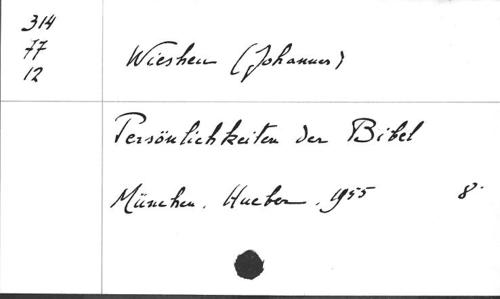 314
77
12
Wieshen (Johannes)
Persönlichkeiten der Bibel
München, Hueber, 1955 8°